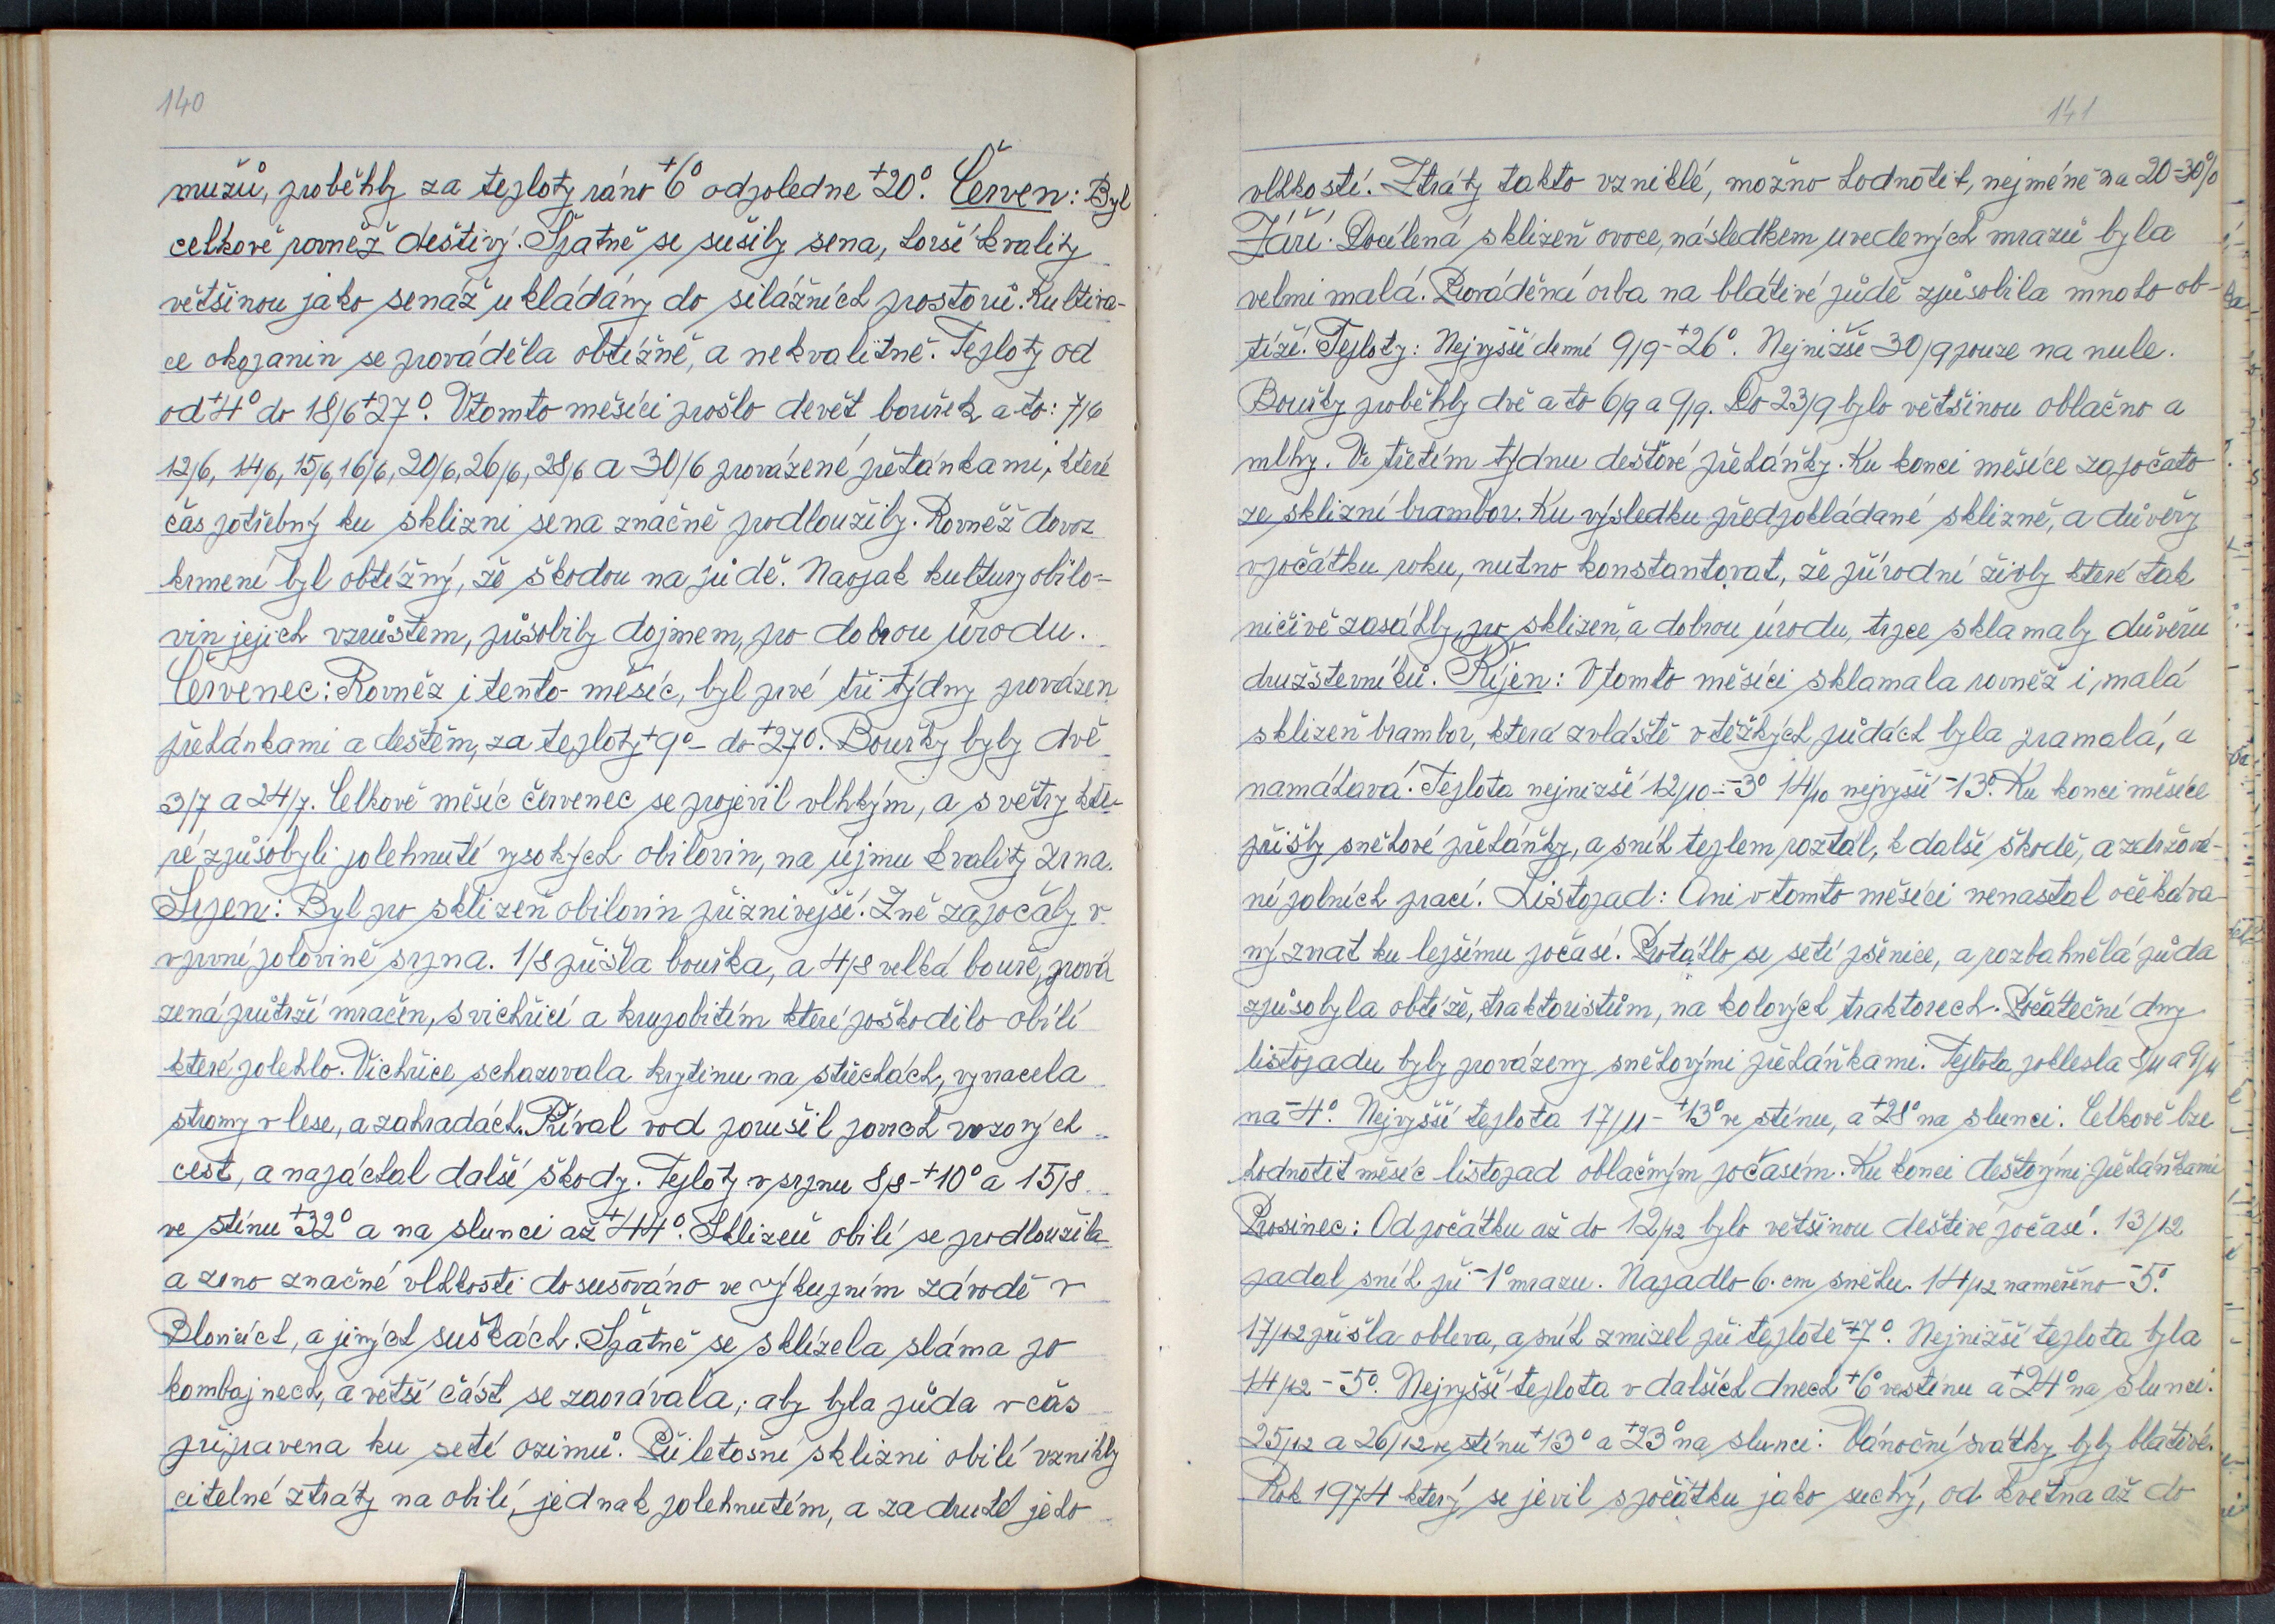 140
mužů, proběhly za teploty ráno +6° odpoledne +20°. Červen: Byl
celkově rovněž deštivý. Špatně se sušily sena, horší kvality
většinou jako senáž ukládány do silážních prostorů. Kultiva-
ce okopanin se prováděla obtížně, a nekvalitně. Teploty od
od +4° do 18/6 +27°. V tomto měsíci prošlo devět bouřek a to: 7/6
12/6, 14/6, 15/6, 16/6, 20/6, 26/6, 28/6 a 30/6 provázené přehánkami, které
čas potřebný ku sklizni sena značně prodloužily. Rovněž dovoz
krmení byl obtížný, že škodou na půdě. Naopak kultury obilo-
vin jejich vzrůstem, působily dojmem, pro dobrou úrodu.
Červenec: Rovněz i tento měsíc, byl prvé tři týdny provázen
přehánkami a deštěm, za teploty +9° - do +27°. Bouřky byly dvě
3/7 a 24/7. Celkově měsíc červenec se projevil vlhkým, a s větry kte-
ré způsobyli polehnutí vysokých obilovin, na újmu kvality zrna.
Srpen: Byl pro sklizeň obilovin příznivejší. Žně započaly v
v první polovině srpna. 1/8 přišla bouřka, a 4/8 velká bouře, prová
zená průtrží mračen, s vichřicí a krupobitím které poškodilo obilí
které polehlo. Vichřice schazovala krytinu na střechách, vyvracela
stromy v lese, a zahradách. Příval vod porušil povrch vozových
cest, a napáchal další škody. Teploty v srpnu 8/8 - +10° a 15/8
ve stínu +32° a na slunci až +44°. Sklizeň obilí se prodloužila
a zrno značné vlhkosti dosušováno ve výkupním závodě v
Blovicích, a jiných suškách. Špatně se sklízela sláma po
kombajnech, a větší část se zaorávala, aby byla půda v čas
připravena ku setí ozimů. Při letošní sklizni obilí vznikly
citelné ztráty na obilí, jednak polehnutém, a za druhé jeho
141
vlhkostí. Ztráty takto vzniklé, možno hodnotit, nejméně na 20-30%
Září: Docílená sklizeň ovoce, následkem uvedených mrazů byla
velmi malá. Prováděná orba na blátivé půdě způsobila mnoho ob-
tíží. Teploty: Nejvyšší denní 9/9 - +26°. Nejnižší 30/9 pouze na nule.
Bouřky proběhly dvě a to 6/9 a 9/9. Do 23/9 bylo většinou oblačno a
mlhy. Ve třetím týdnu dešťové přeháňky. Ku konci měsíce započato
ze sklizní brambor. Ku výsledku předpokládané sklizně, a důvěry
v počátku roku, nutno konstantovat, že přírodní živly které tak
ničivě zasáhly, pro sklizeň, a dobrou úrodu, trpce sklamaly důvěru
družstevníků. Říjen: V tomto měsíci sklamala rovněž i malá
sklizeň brambor, která zvláště v těžkých půdách byla pramalá, a
namáhavá. Teplota nejnizší 12/10 - -3° 14/10 nejvyšší -13°. Ku konci měsíce
přišly sněhové přeháňky, a sníh teplem roztál, k další škodě, a zdržová-
ní polních prací. Listopad: Ani v tomto měsíci nenastal očekáva-
ný zvrat ku lepšímu počasí. Protáhlo se setí pšenice, a rozbahnělá půda
způsobyla obtíže, traktoristům, na kolových traktorech. Počáteční dny
listopadu byly provázeny sněhovými přeháňkami. Teplota poklesla 8/11 a 9/11
na -4°. Nejvyšší teplota 17/11 - +13° ve stínu, a +28° na slunci. Celkově lze
hodnotit měsíc listopad oblačným počasím. Ku konci deštovými přeháňkami
Prosinec: Od počátku až do 12/12 bylo většinou deštivé počasí. 13/12
padal sníh při -1° mrazu. Napadlo 6. cm sněhu. 14/12 naměřeno -5°.
17/12 přišla obleva, a sníh zmizel při teplotě +7°. Nejnižší teplota byla
14/12 - -5°. Nejvyšší teplota v dalších dnech +6° ve stínu a +24° na slunci.
25/12 a 26/12 ve stínu +13° a +23° na slunci. Vánoční svátky byly blátivé.
Rok 1974 který se jevil spočátku jako suchý, od května až do